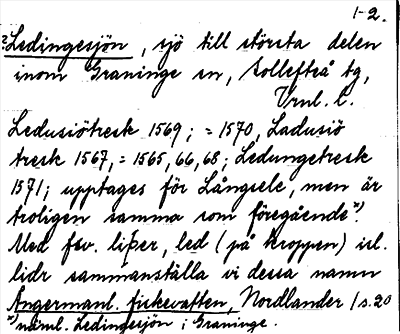 1-2.
?Ledingesjön, sjö till största delen
inom Graninge sn, Sollefteå tg,
Vrnl. l.
Ledusiötresk 1569; = 1570, Ladusiö
tresk 1567, = 1565, 66, 68; Ledungetresk
1571; upptages för Långsele, men är
troligen samma som föregående*).
Med fsv. liþer, led (på kroppen) isl.
liðr sammanställa vi dessa namn
Ångermanl. fiskevatten, Nordlander / s. 20
*) näml. Ledingesjön i Graninge.